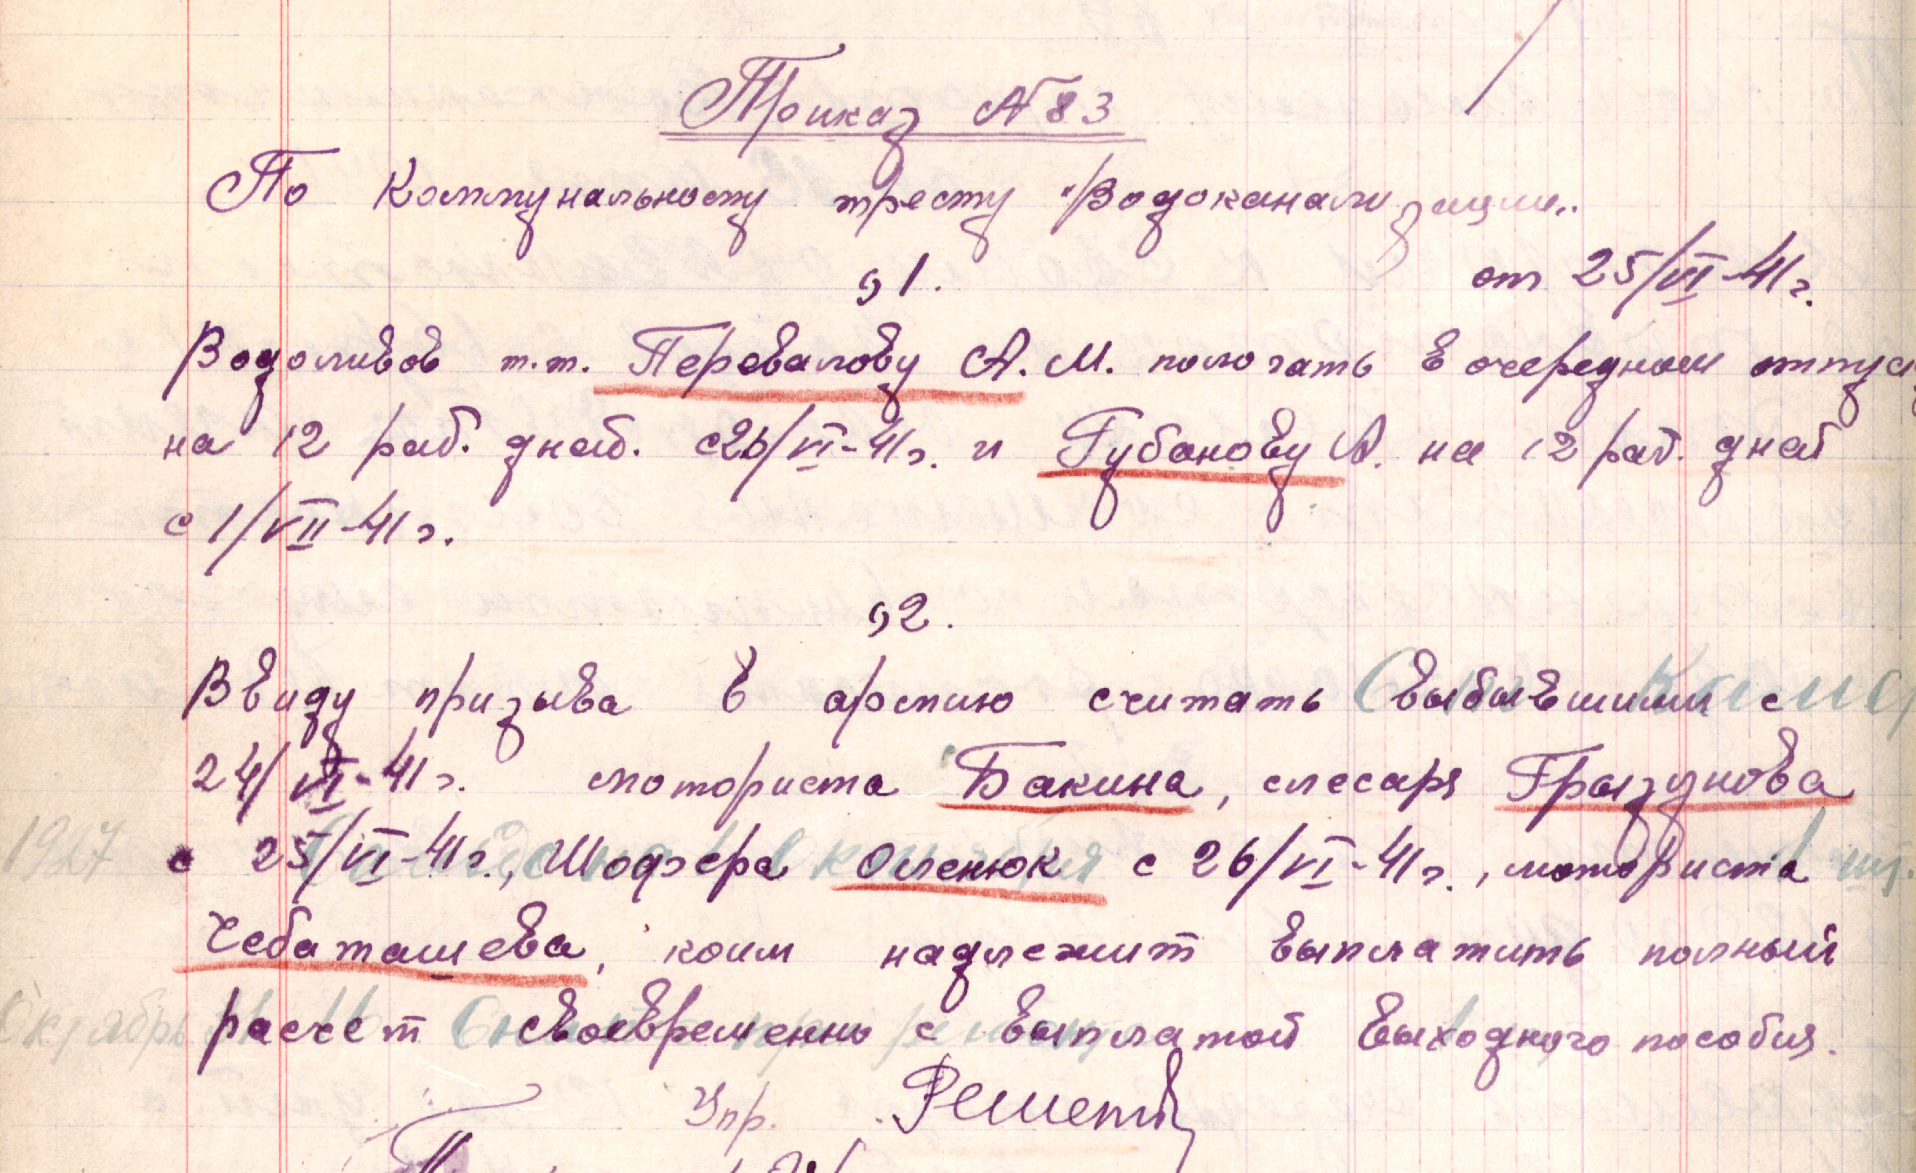 Приказ № 83
По Коммунальному тресту "Водоканализации„
§1.
от 25/VI-41г.
Водоливов т.т. Перевалову А. М. пологать в очередном отпуску
на 12 раб. дней. с 26/VI-41г. и Губанову А. на 12 раб. дней
с 1/VII-41г.
§2.
Ввиду призыва в армию считать выбывшими с
24/VI-41г. моториста Бакина, слесаря Грызунова
с 25/VI-41г., Шофера Оленюк с 26/VI-41г., моториста
Чебаташева, коим надлежит выплатить полный
расчет своевременно с выплатой выходного пособия.
1927
Октябрь
Упр. Решетов